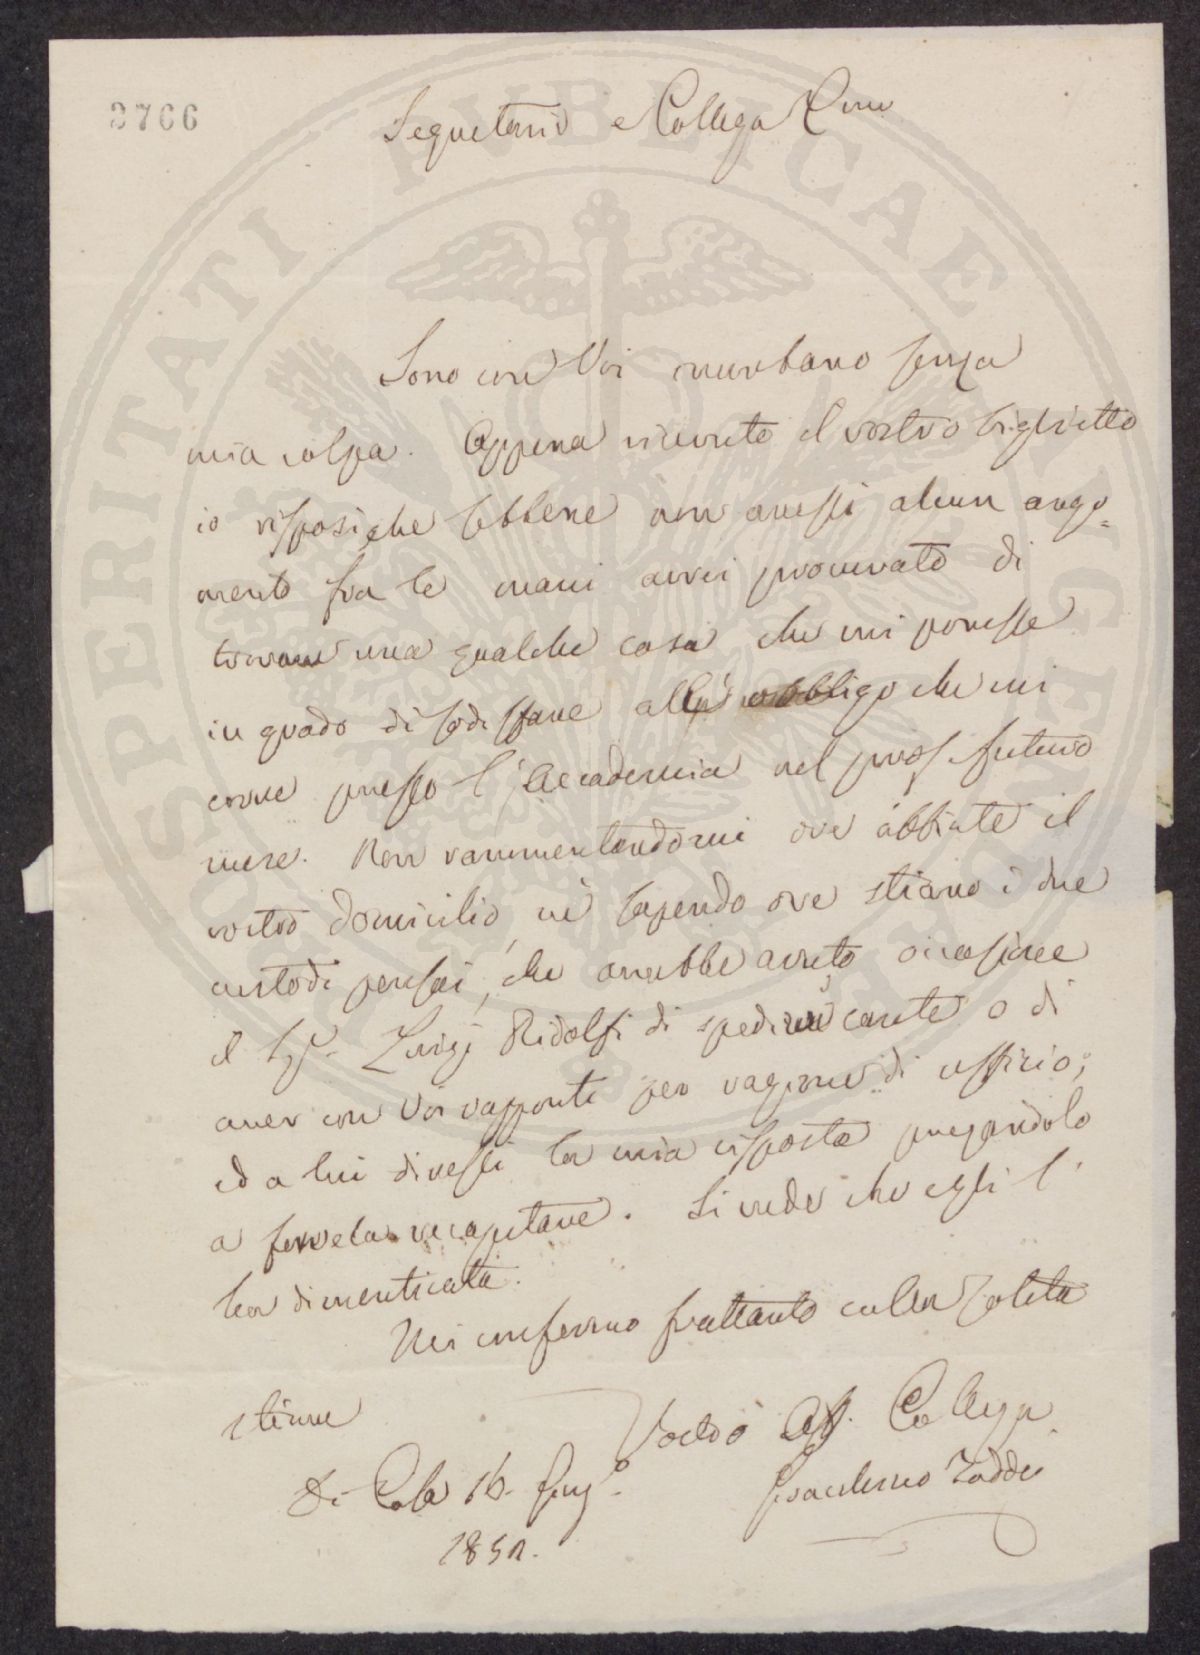 3766
Segretario e Collega Cmo
Sono con Voi incurbano senza
mia colpa. Appena ricevuto il vostro biglietto
io risposi che sebbene non avessi alcun argo=
mento fra le mani avrei procurato di
trovare una qualche cosa che mi ponesse
in grado di sodisfare all' obbligo che mi
corre presso l'Accademia nel pros futuro
mese. Non rammentandomi ove abbiate il
vostro domicilio, nè sapendo ove stiano i due
custodi pensai, che avrebbe avuto occasione
il Sigr. Luigi Ridolfi di spedirvi carte o di
aver con Voi rapporti per ragione di uffizio;
ed a lui diressi la mia risposta pregandolo
a farvela recapitare. Si vede che egli l'
ha dimenticata.
Mi confermo frattanto colla solita
stima
Vostro Aff. Collega
Gioacchino Taddei
Di Casa 16. Giugo.
1851.
PROSPERITATI PVBLICAE AVGENDAE